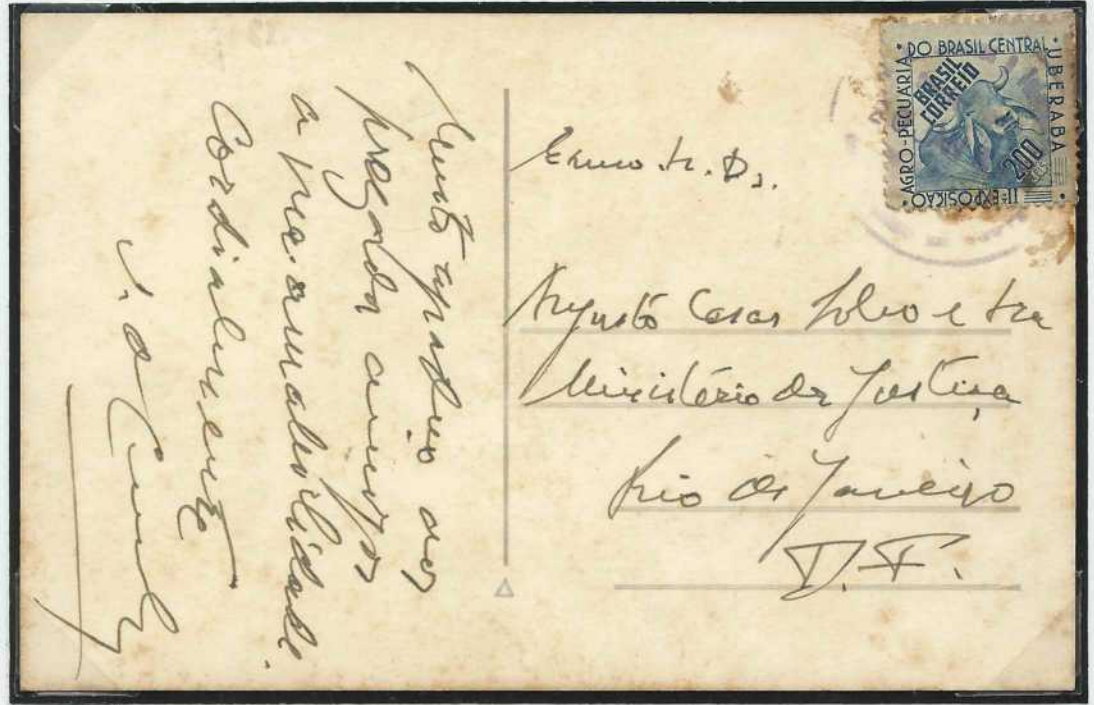 Muito agradeço aos
prezados amigos
a sua amabilidade.
Cordialmente
Exmo Sr. Dr.
Augusto Cesar Lobo e Sra
Ministério da Justiça
Rio de Janeiro
D.F.
AGRO-PECUÁRIA
DO BRASIL CENTRAL
UBERABA
IIª EXPOSIÇÃO
BRASIL
CORREIO
200